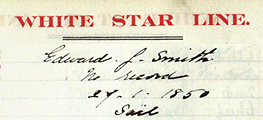 WHITE STAR LINE.
Edward J. Smith
No record
27.1.1850
Sail